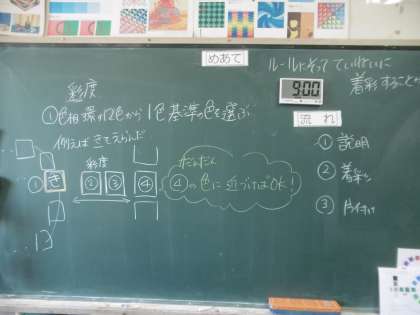 めあて
ルールにそって ていねいに
着彩すること
9:00
彩度
①色相環12色から1色基準の色を選ぶ
例えば きでえらんだ
流れ
① 説明
② 着彩
③ 片付け
彩度
だんだん
① き ② ③ ④
④の色に近づけばOK!